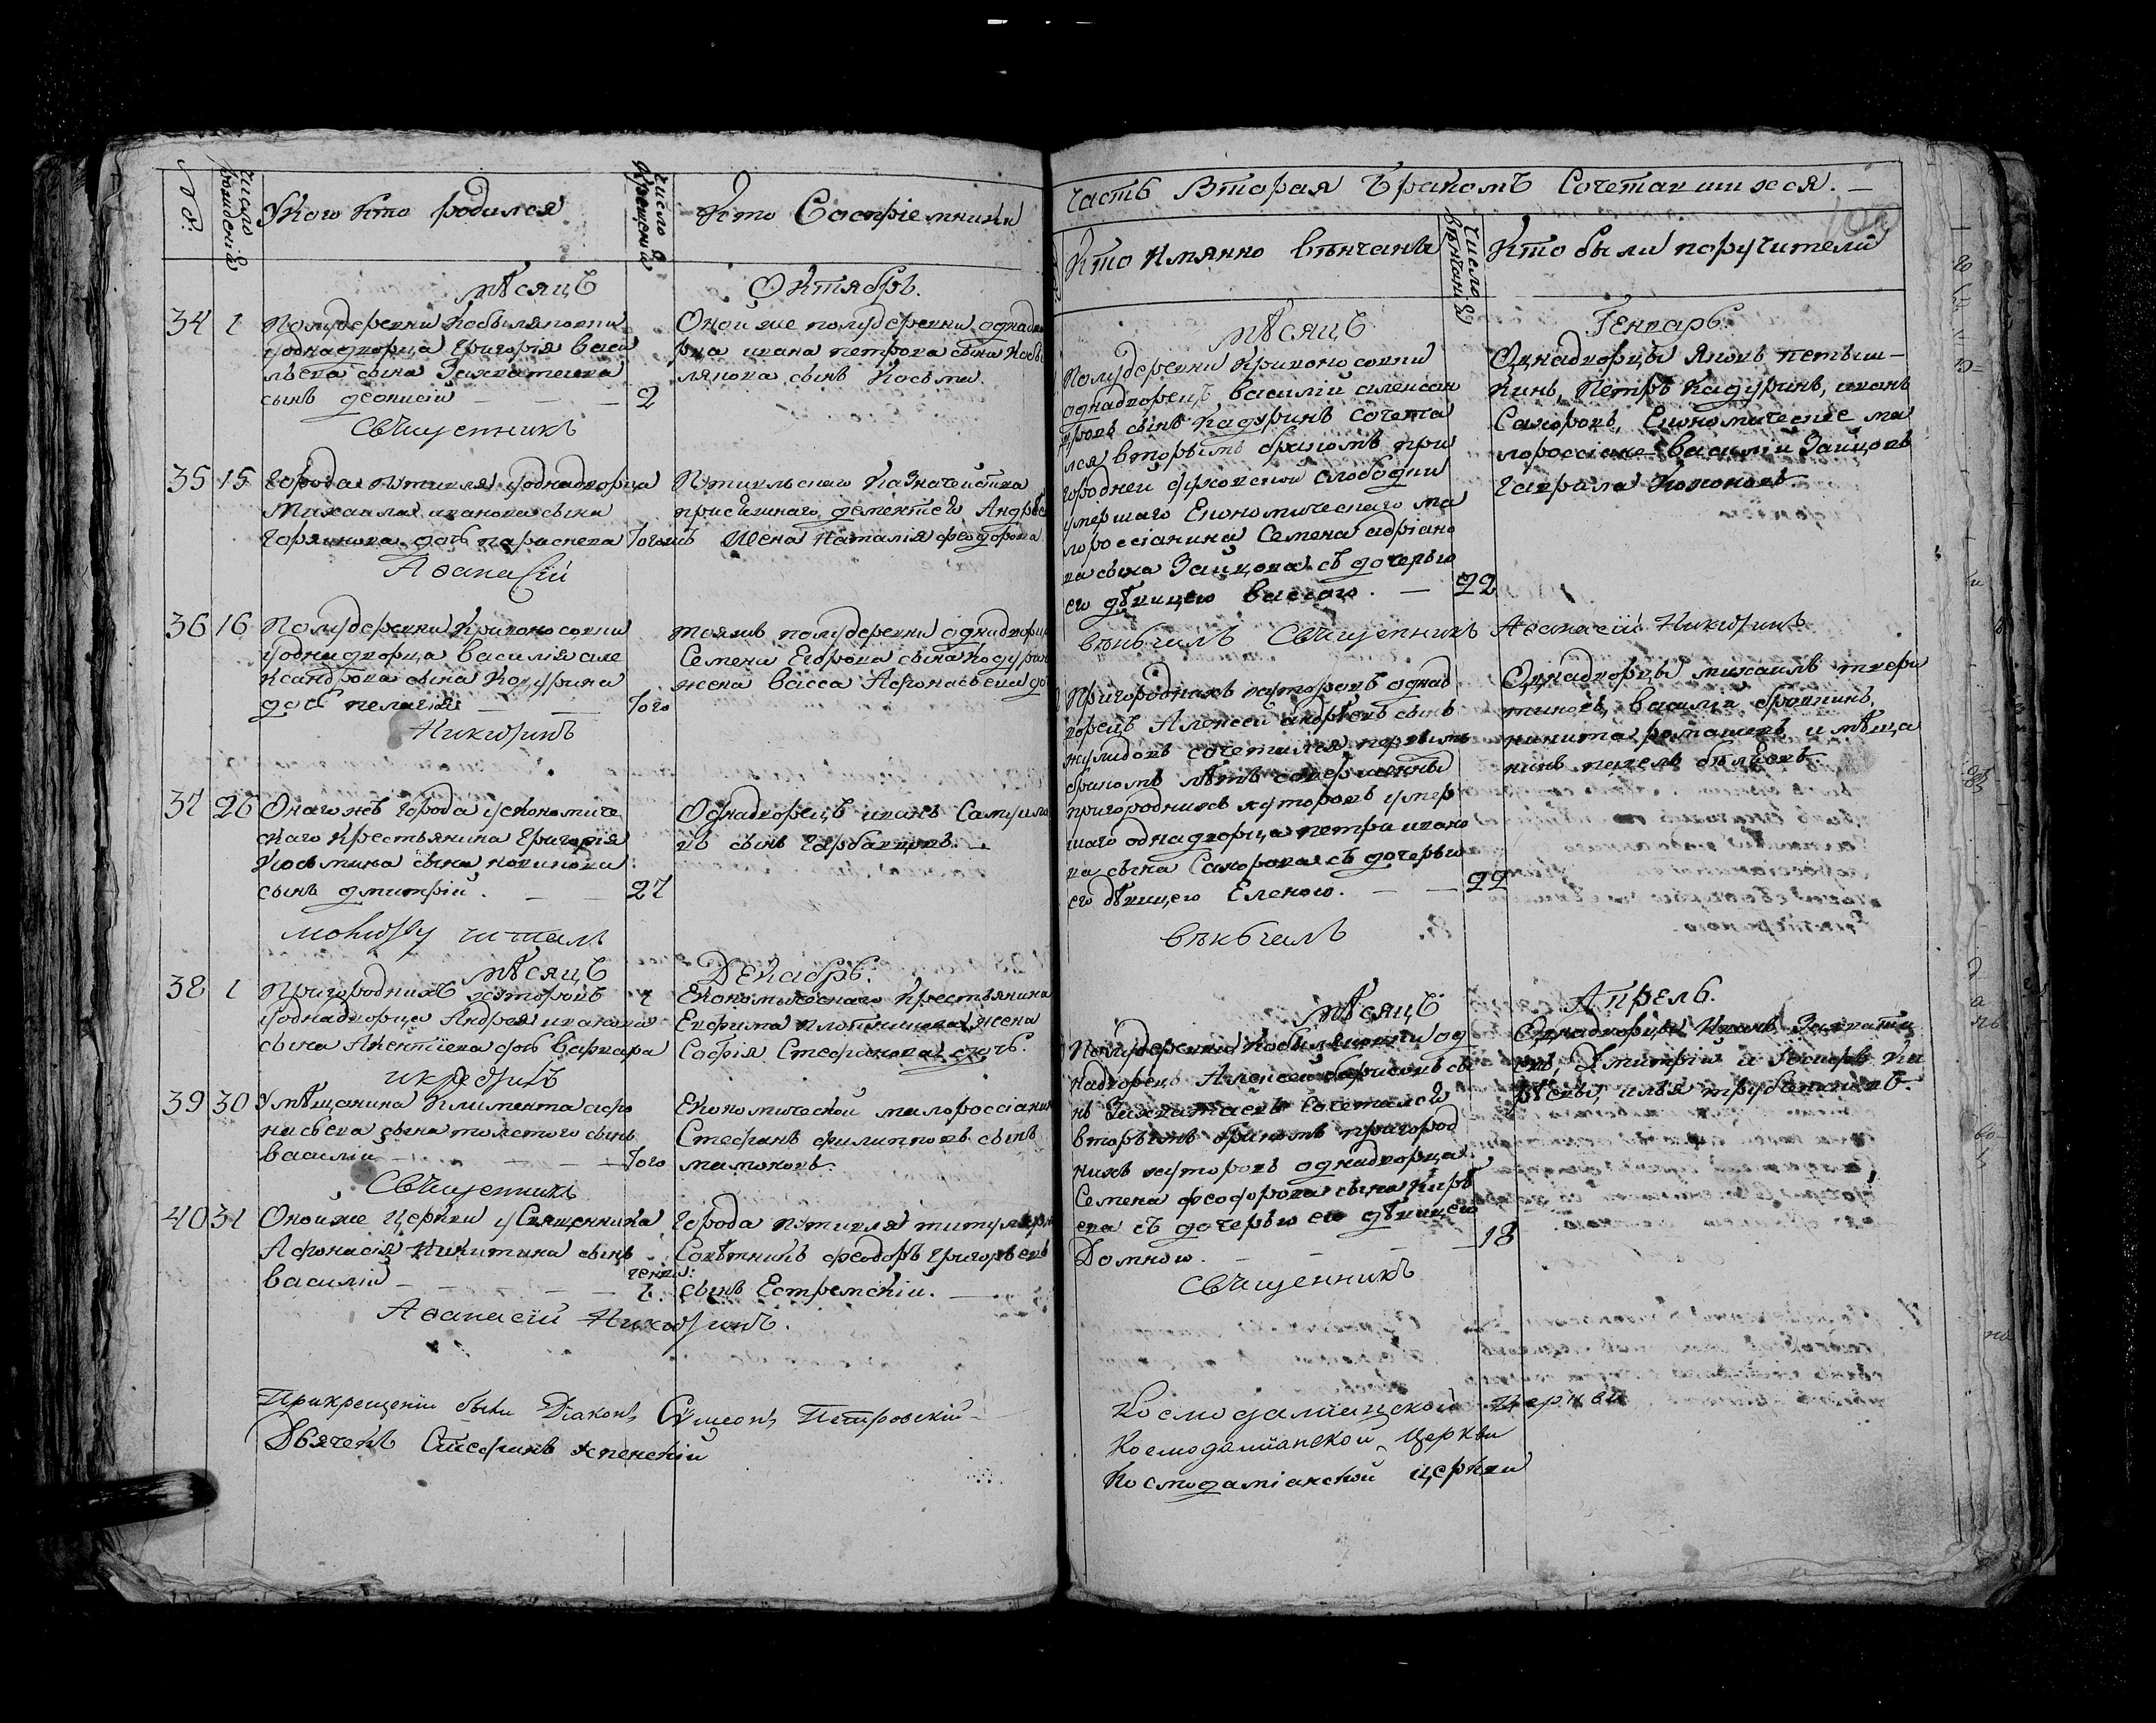 №:
число рождения
У кого кто родился
число крещения
Кто Воспріемники
мѣсяцъ Октябрь.
34 1 Полудеревни Кобыляковки
у однодворца Григорія Васи
льева сына Захватаева
сынъ Деонисій 2
Оной же полудеревни однодво
рца Ивана Петрова сына Кобы
лякова сынъ Косьма
Священникъ
35 15 Города Путивля у однодворца
Михаила Иванова сына
Горяинова дочь Параскева Того
Путивльскаго Казначейства
присяжнаго Дементея Андрѣе
жена Наталія Феодорова
Аѳанасій
36 16 Полудеревни Кривоносовки
у однодворца Василія Але
ксандрова сына Кадурина
дочь Пелагія Того
тояжъ полудеревни однодворца
Семена Егорова сына Кадурин
жена Васса Афонасьева до
Никитинъ
37 26 Онагожъ города у економиче
скаго крестьянина Григорія
Козьмина сына
сынъ Дмитрій. 27
Однодворецъ Иванъ Самуило
въ сынъ Горбачовъ.
молитву читалъ
мѣсяцъ Декабрь.
38 1 Пригороднихъ хуторовъ 1
у однодворца Андрея Иванова
сына дочь Варвара
Економическаго крестьянина
Евфима Плотникова жена
Софія Стефанова дочь.
и крестилъ
39 30 У мѣщанина Климента Афо
насьева сына Толстого сынъ
Василій Того
Економической малороссіянин
Стефанъ Филипповъ сынъ
Мамоновъ.
Священникъ
40 31 Оной же церкви у Священника
Афонасія Никитина сынъ
Василій генв: 1.
Города Путивля титулярн
Совѣтникъ Феодоръ Григорьевъ
сынъ Естремскій.
Аѳанасій Никитинъ.
При крещеніи были Діаконъ Сѵмеонъ Петровскій
Дьячекъ Стефанъ Успенскій
Часть Вторая Бракомъ Сочетавшихся.
103
Кто имянно вѣнчаны
число вѣнчанія
Кто были поручители
мѣсяцъ Генварь.
Полудеревни Кривоносовки
однодворецъ Василій Алексан
дровъ сынъ Кадуринъ сочета
лся вторымъ бракомъ при
городней слободки
умершаго Економическаго ма
лороссіянина Семена Адріано
ва сына Зайцова съ дочерью
его дѣвицею Вассою. 22
Однодворцы Яковъ
Петръ Кадуринъ, Иванъ
Сахоровъ, Економическіе ма
лороссіяне Василій Зайцовъ
Гаврила Кононовъ.
вѣнчалъ Священникъ Аѳанасій Никитинъ
Пригороднихъ хуторовъ однод
ворецъ Алексей Андрѣевъ сынъ
сочетался первымъ
бракомъ лѣтъ совершенны
пригороднихъ хуторовъ умер
шаго однодворца Петра Ивано
ва сына Сахорова съ дочерью
его дѣвицею Еленою. 22
Однодворцы Михаилъ Твери
тиновъ, Василій
Никита Романовъ и мѣща
нинъ Павелъ Бѣльовъ.
вѣнчалъ
мѣсяцъ Апрель.
Полудеревни Кобыляковки од
надворецъ Алексей Борисовъ сы
нъ Захватаевъ сочетался
вторымъ бракомъ пригород
нихъ хуторовъ однодворца
Семена Феодорова сына Кирѣ
ева съ дочерью его дѣвицею
Домною. 18
Однодворцы Иванъ Захвата
евъ, Дмитрій и Ки
рѣевы, Илья
Священникъ
Космодаміанской церкви
Космодаміанской церкви
Космодаміанской церкви